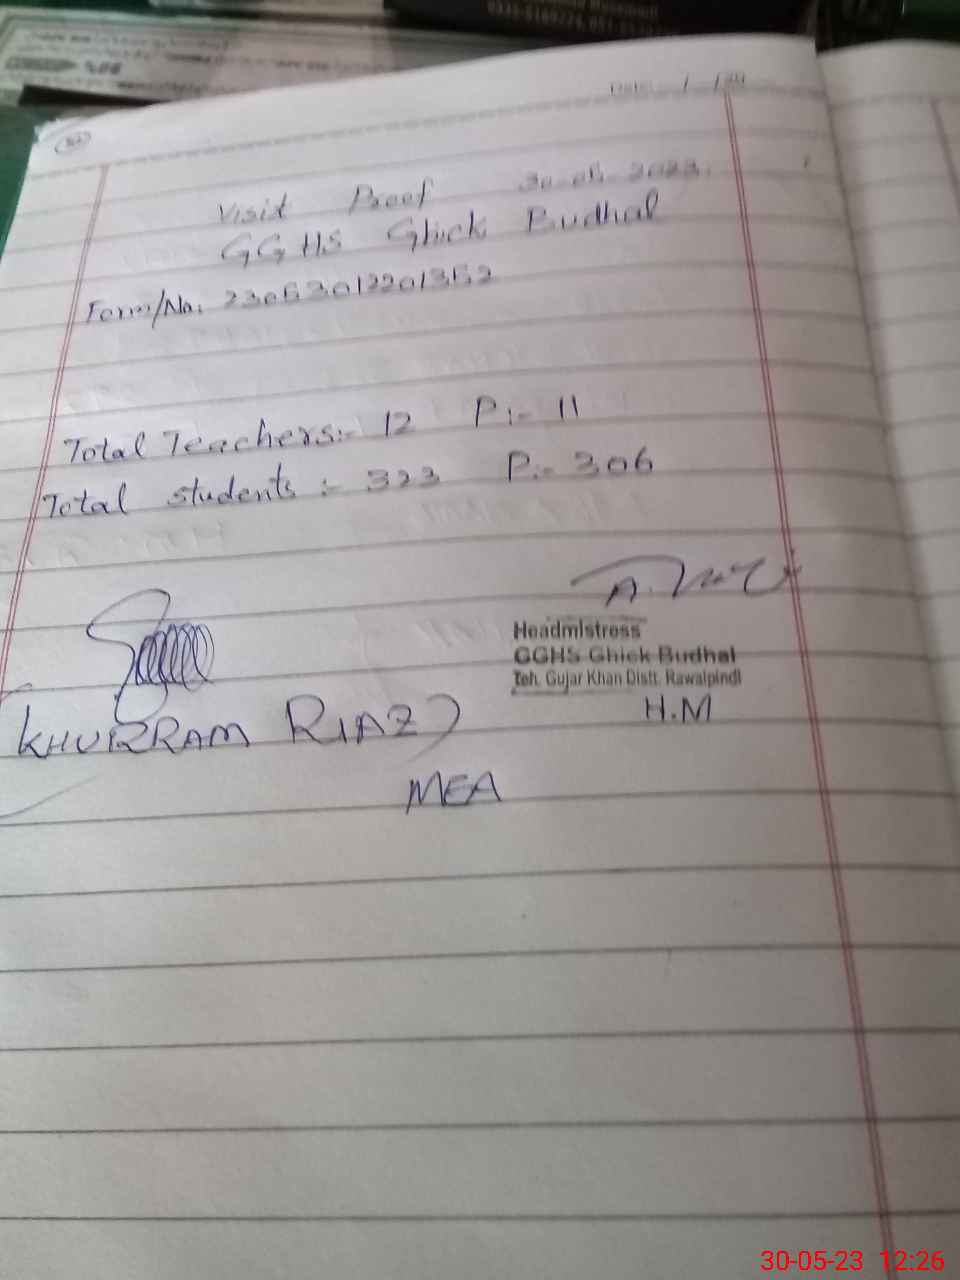 Visit Proof 30.05.2023.
GGHS Ghick Budhal
Form/No: 23053012201352
Total Teachers:- 12 P:- 11
Total students :- 323 P:- 306
Headmistress
GGHS Ghick Budhal
Teh. Gujar Khan Distt. Rawalpindi
H.M
KHURRAM RIAZ)
MEA
30-05-23 12:26